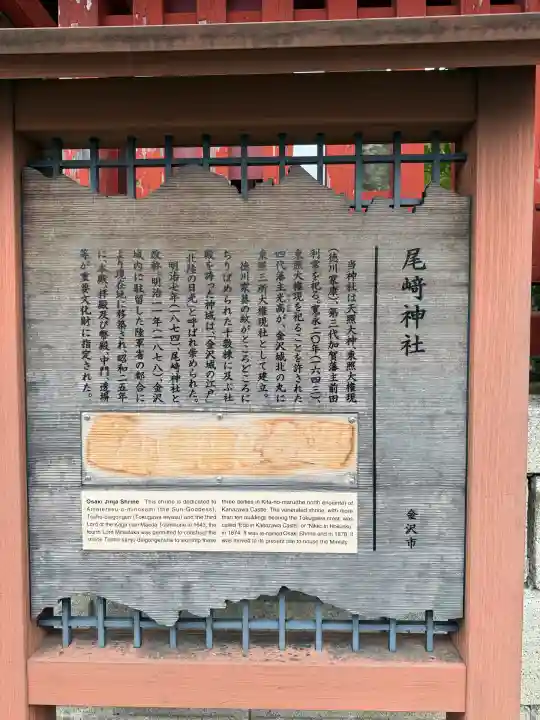 尾﨑神社
当神社は天照大神、東照大権現
(徳川家康)、第三代加賀藩主前田
利常を祀る。寛永二〇年(一六四三)、
東照大権現を祀ることを許された
四代藩主光高が、金沢城北の丸に
東照三所大権現社として建立。
徳川家葵の紋がところどころに
ちりばめられた十数棟に及ぶ社
殿を誇った神域は、「金沢城の江戸」
「北陸の日光」と呼ばれ崇められた。
明治七年(一八七四)、尾﨑神社と
改称。明治一一年(一八七八)、金沢
城内に駐留した陸軍省の都合に
より現在地に移築され、昭和二五年
に、本殿、拝殿及び幣殿、中門、透塀
等が重要文化財に指定された。
金沢市
Osaki Jinja Shrine This shrine is dedicated to
Amaterasu-o-minokami (the Sun-Goddess),
Tosho-daigongen (Tokugawa Ieyasu) and the third
Lord of the Kaga clan Maeda Toshitsune. In 1643, the
fourth Lord Mitsutaka was permitted to construct the
Tosho-sansho-daigongensha to worship these
three deities in Kita-no-maru(the north enceinte) of
Kanazawa Castle. The venerated shrine, with more
than ten buildings bearing the Tokugawa crest, was
called "Edo in Kanazawa Castle" or "Nikko in Hokuriku."
in 1874, it was re-named Osaki Shrine and in 1878, it
was moved to its present site to house the Ministry